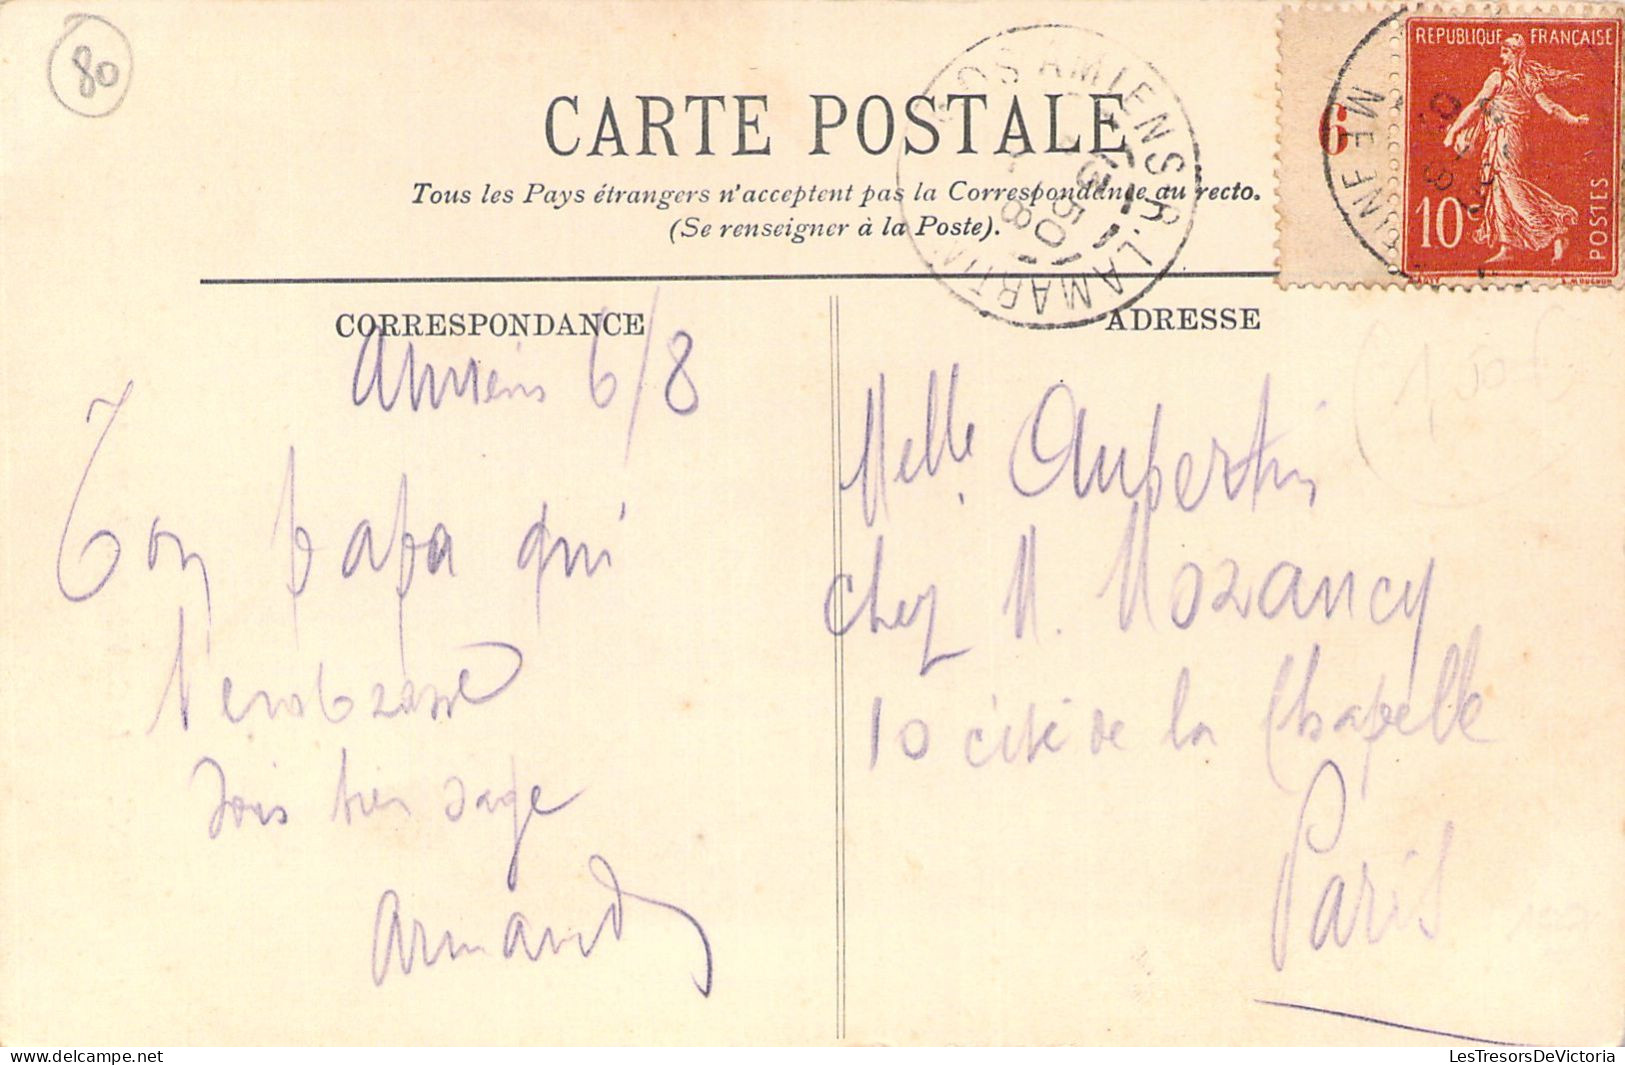 80
CARTE POSTALE
Tous les Pays étrangers n'acceptent pas la Correspondance au recto.
(Se renseigner à la Poste).
AMIENS R. LAMARTINE
REPUBLIQUE FRANÇAISE
10c
POSTES
6
CORRESPONDANCE
Amiens 6/8
Ton papa qui
t'embrasse
Sois bien sage
Armand
ADRESSE
Melle Aubertin
chez M. Mozancy
10 cité de la Chapelle
Paris
1,50 €
delcampe.net
LesTresorsDeVictoria